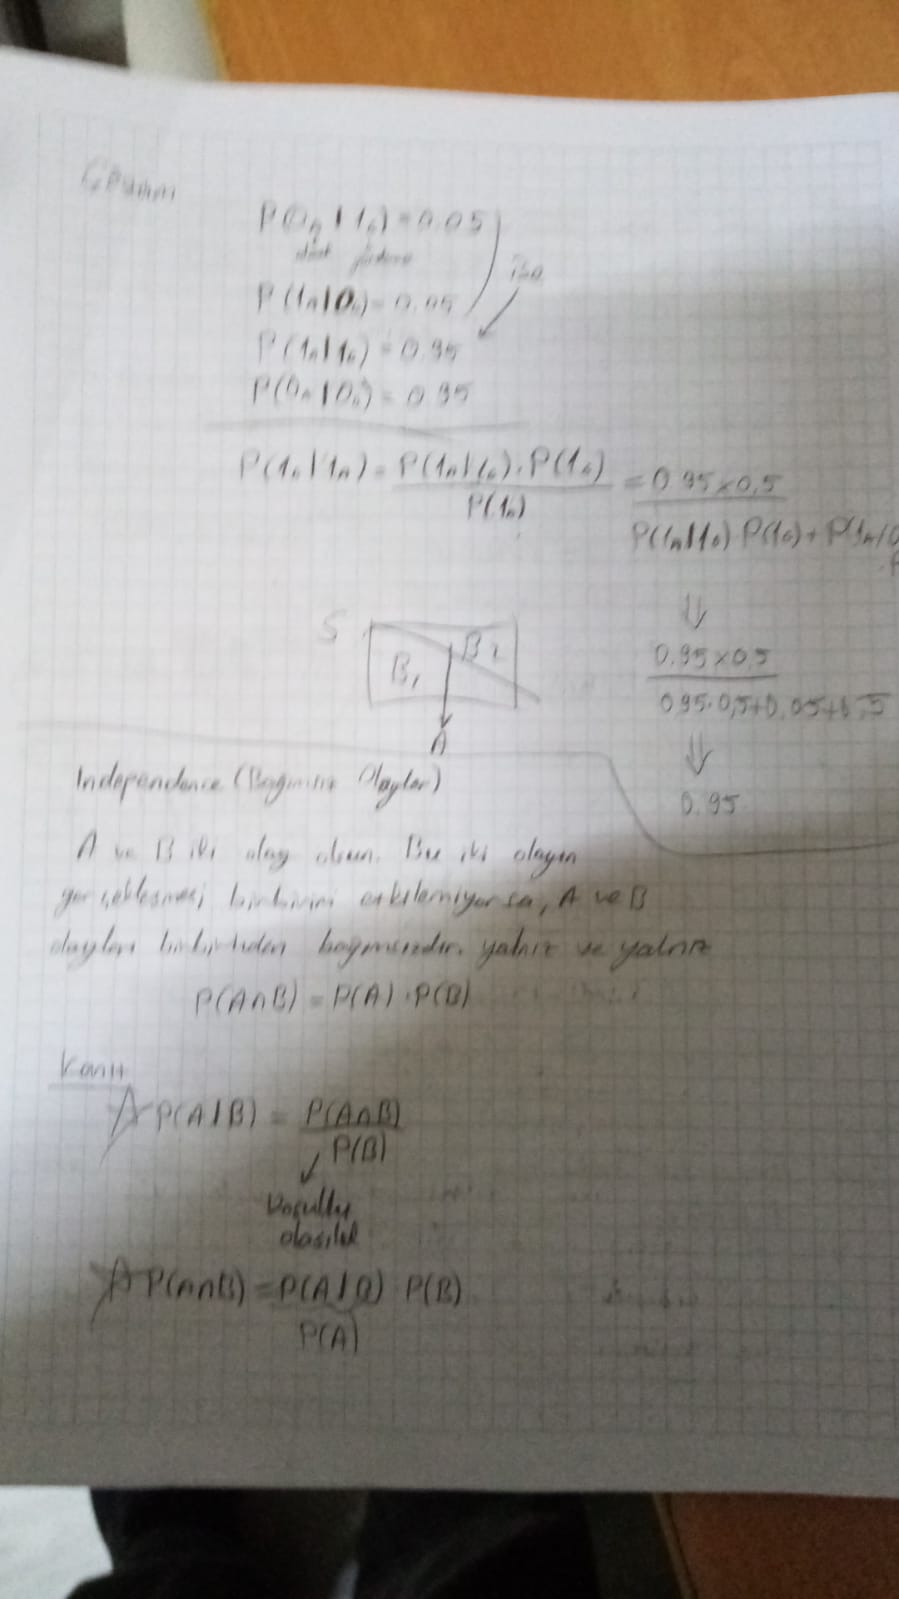 Çözüm
P(0ₐ | 1₆) = 0.05
P(1ₐ|0₆) = 0.05
ise
P(1ₐ|1₆) = 0.95
P(0ₐ|0₆) = 0.95
P(1₆|1ₐ) = P(1ₐ|1₆).P(1₆) = 0.95x0,5
P(1ₐ) P(1ₐ|1₆).P(1₆) + P(1ₐ/0
⇓
S B₁ B₂
0.95x0.5
0.95.0,5+0.05+0.5
A
⇓
0.95
Independence (Bağımsız Olaylar)
A ve B iki olay olsun. Bu iki olayın
gerçekleşmesi birbirini etkilemiyorsa, A ve B
olayları birbirinden bağımsızdır. yalnız ve yalnız
P(A∩B) = P(A).P(B)
Kanıt
P(A|B) = P(A∩B)
P(B)
Koşullu
olasılık
P(A∩B) = P(A|B) P(B)
P(A)